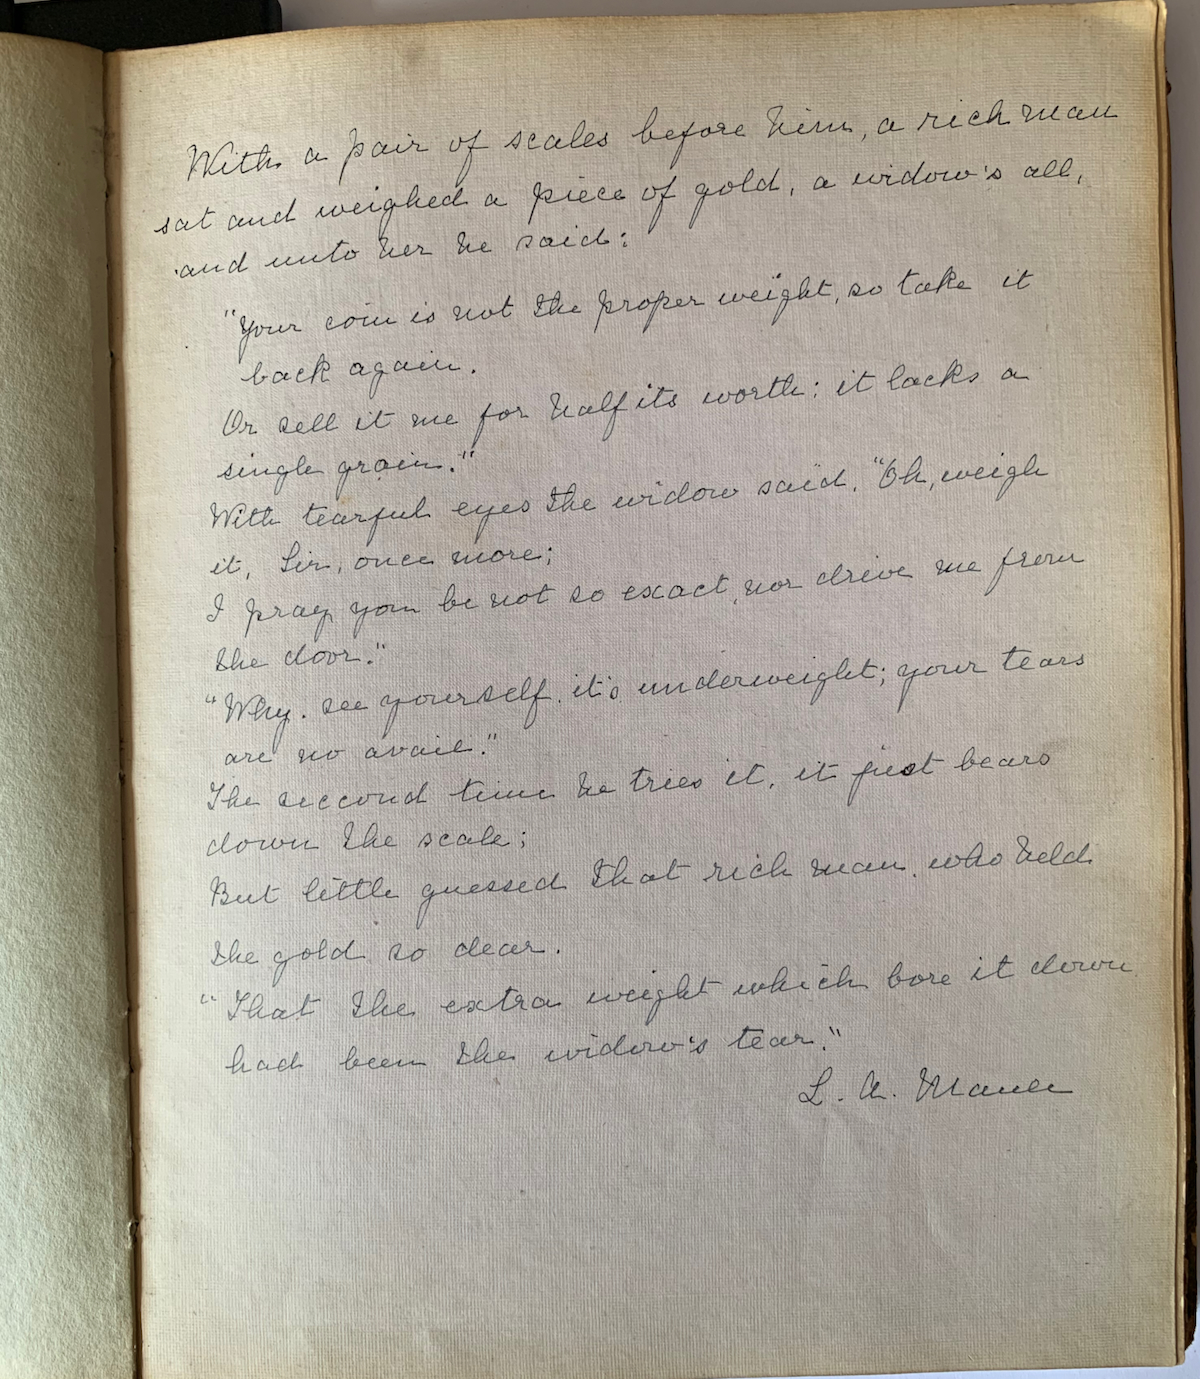 With a pair of scales before him, a rich man
sat and weighed a piece of gold, a widow's all,
and unto her he said:
"Your coin is not the proper weight, so take it
back again.
Or sell it me for half its worth; it lacks a
single grain."
With tearful eyes the widow said, "Oh, weigh
it, Sir, once more;
I pray you be not so exact, nor drive me from
the door."
"Why. see yourself. it's underweight; your tears
are no avail."
The second time he tries it, it just bears
down the scale;
But little guessed that rich man, who held
the gold so dear.
"That the extra weight which bore it down
had been the widow's tear."
L. A.